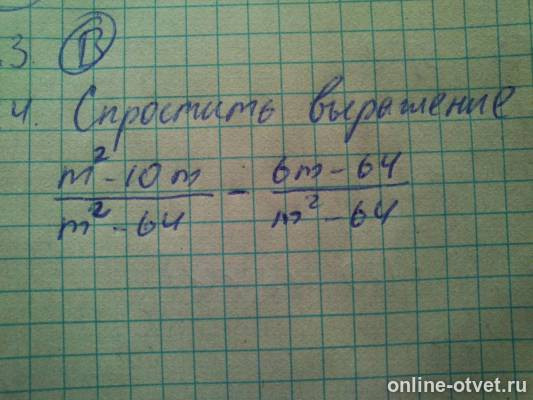 3. В
4. Спростить выражение
m² - 10m / m² - 64 - 6m - 64 / m² - 64
online-otvet.ru